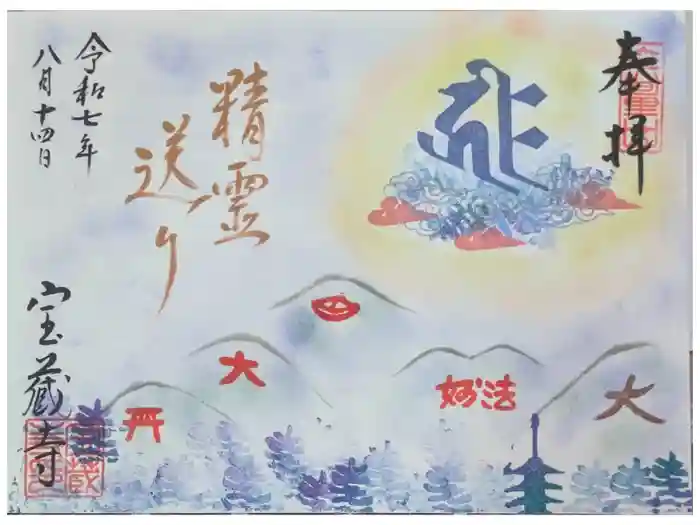 奉拝
精霊
送り
令和七年
八月十四日
宝蔵寺
大
妙法
大